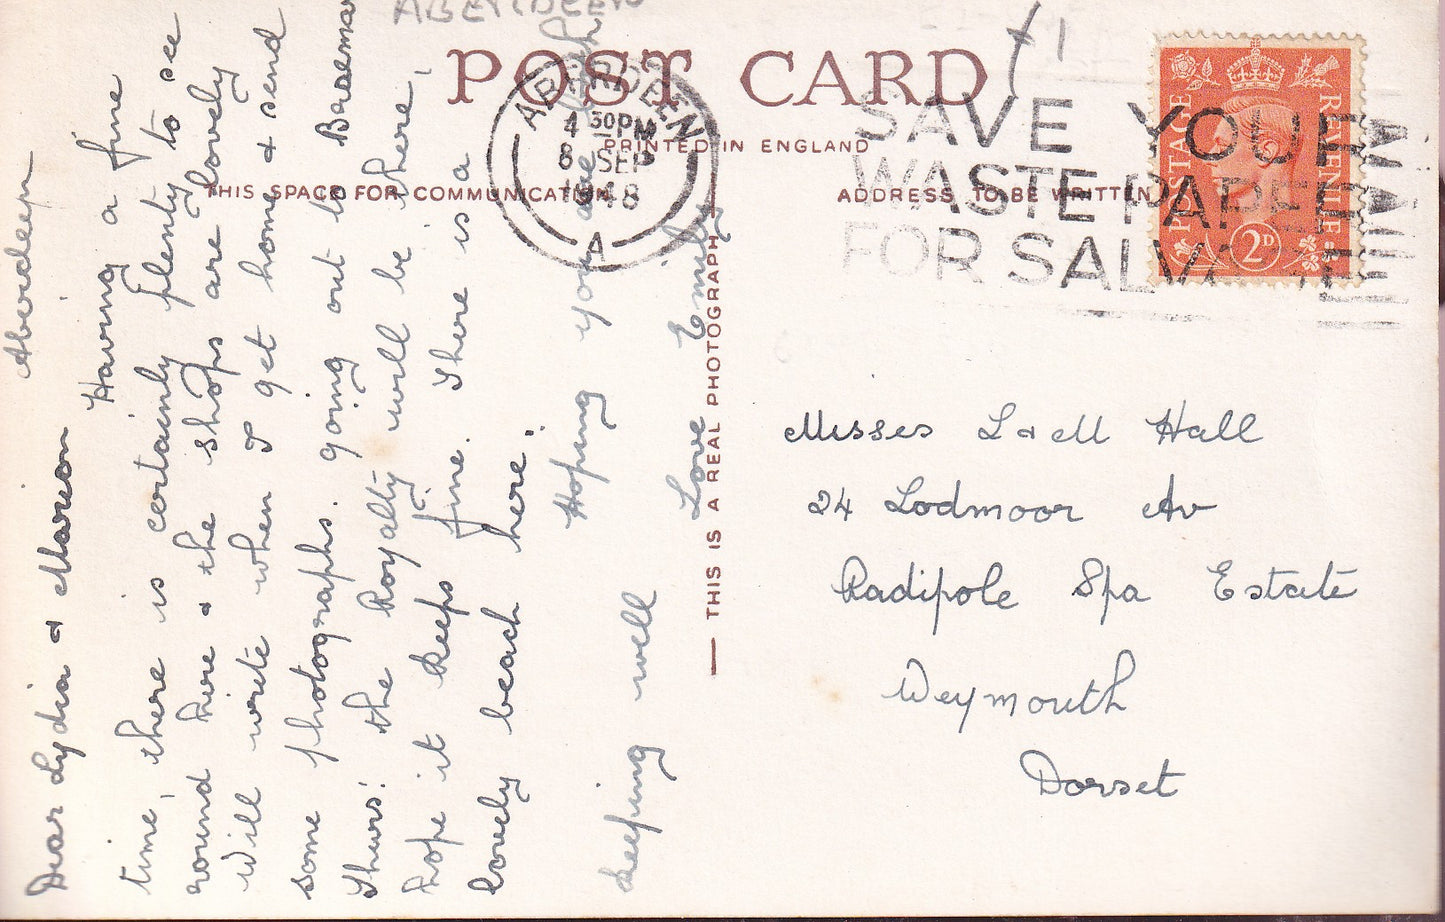 ABERDEEN
POST CARD
PRINTED IN ENGLAND
THIS SPACE FOR COMMUNICATION
ADDRESS TO BE WRITTEN
ABERDEEN
4 30PM
8 SEP
1948
A
SAVE YOUR
WASTE PAPER
FOR SALVAGE
POSTAGE
REVENUE
2D
THIS IS A REAL PHOTOGRAPH
Aberdeen
Dear Lydia & Marion
Having a fine
time, there is certainly plenty to see
round here & the shops are lovely
Will write when I get home & send
some photographs. going out to Braemar
Thurs: the Royalty will be there,
hope it keeps fine. There is a
lovely beach here.
Hoping you are both
keeping well
Love Emily
Misses L & M Hall
24 Lodmoor Av
Radipole Spa Estate
Weymouth
Dorset